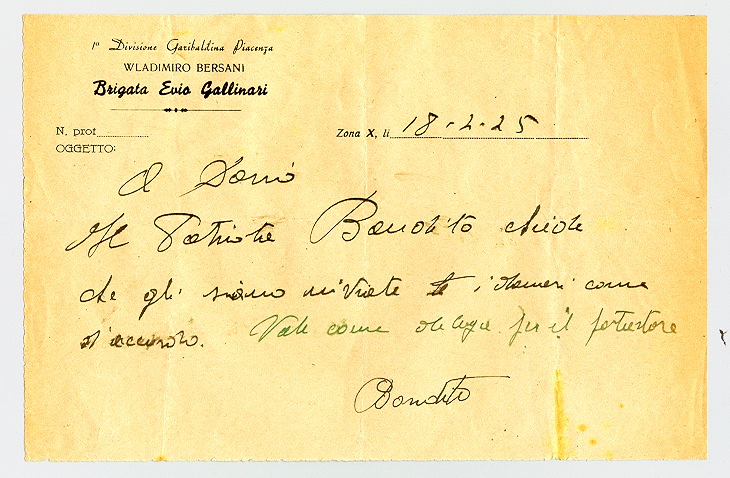 1ª Divisione Garibaldina Piacenza
WLADIMIRO BERSANI
Brigata Evio Gallinari
N. prot
Zona X, li 18-2-25
OGGETTO:
Il Patriota Bandito chiede
che gli siano inviate i denari come
d'accordo. Vale come delega per il portatore
Bandito